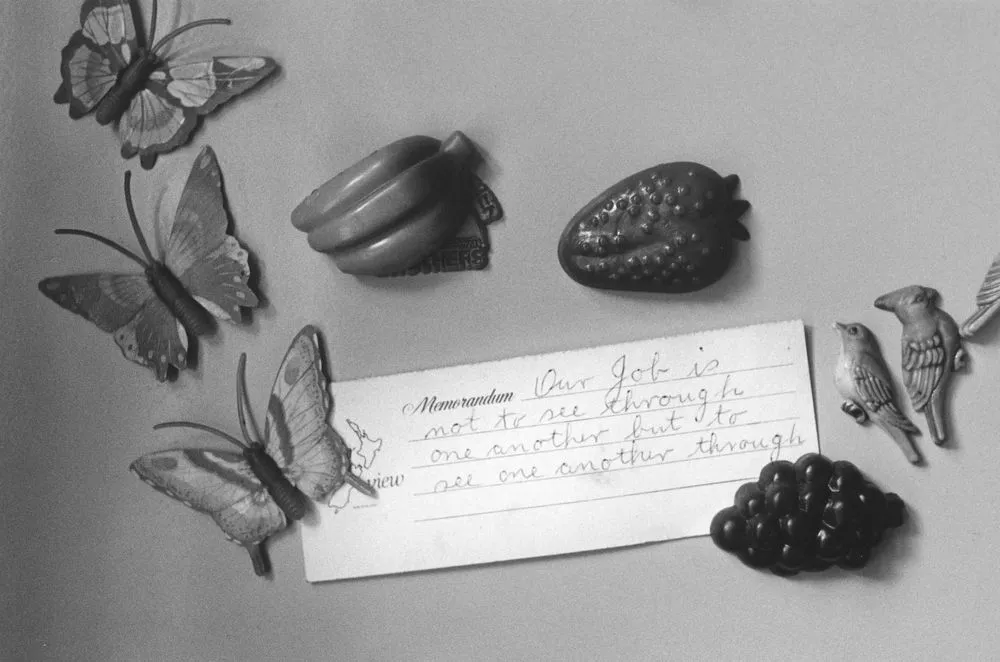 OTHERS
Memorandum Our Job is
not to see through
one another but to
see one another through
view